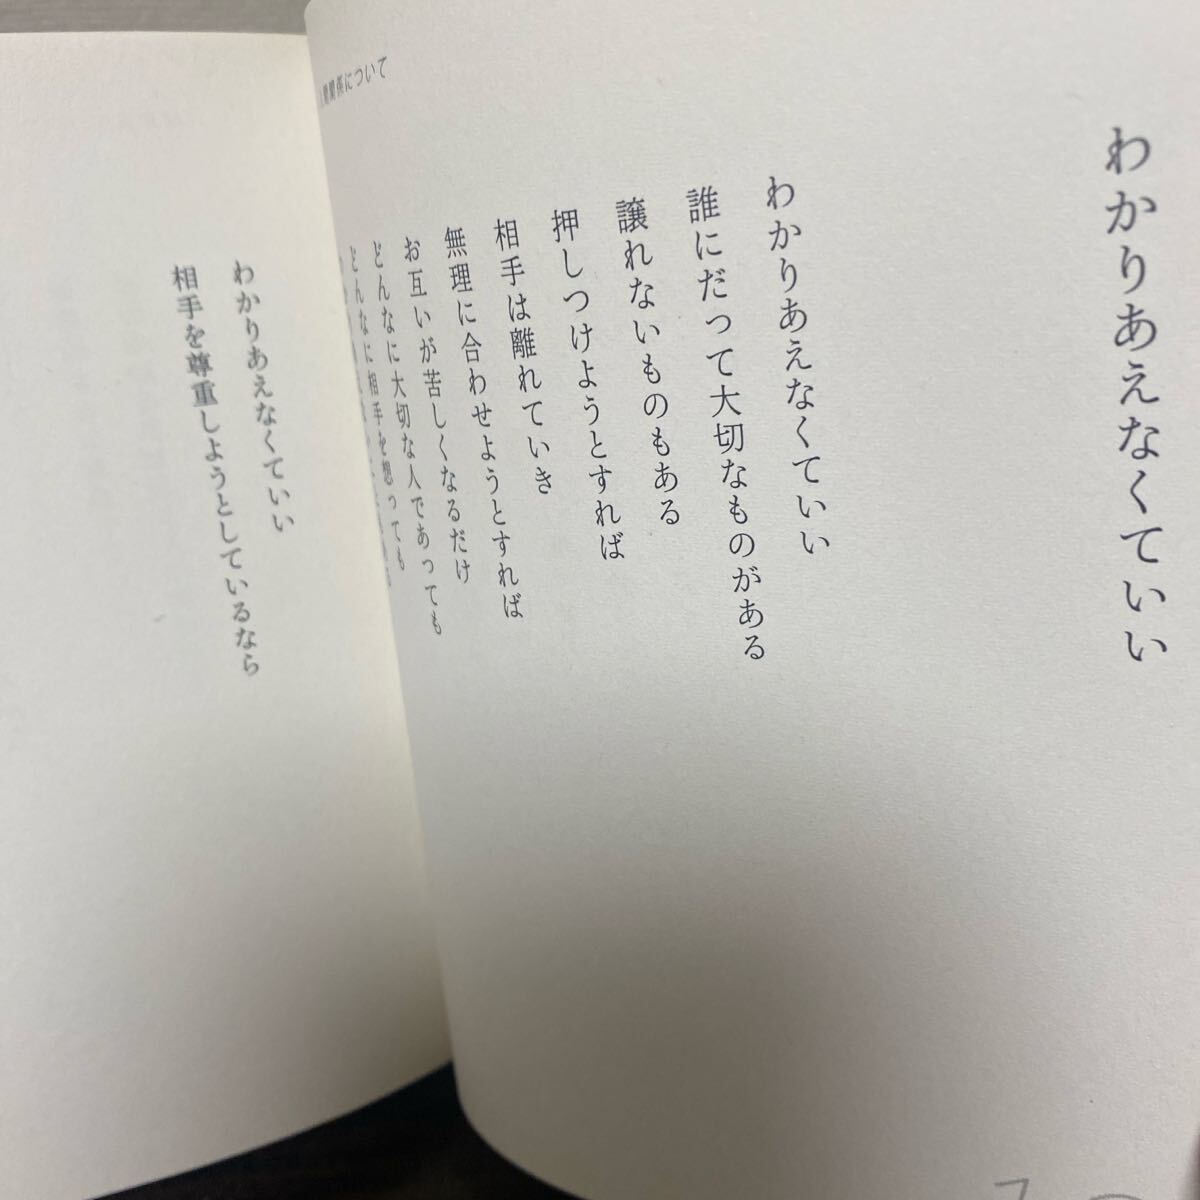 わかりあえなくていい
わかりあえなくていい
誰にだって大切なものがある
譲れないものもある
押しつけようとすれば
相手は離れていき
無理に合わせようとすれば
お互いが苦しくなるだけ
どんなに大切な人であっても
どんなに相手を想っても
関係について
わかりあえなくていい
相手を尊重しようとしているなら